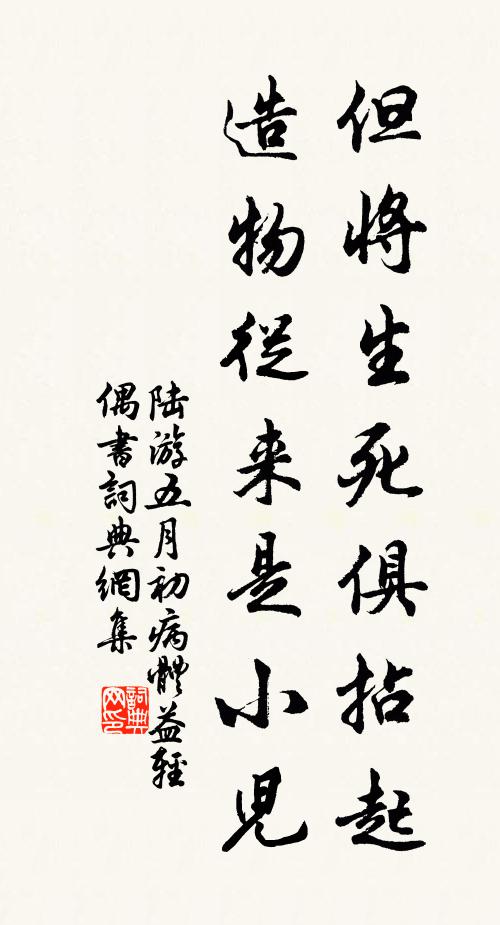 但将生死俱拈起
造物從来是小児
陆游五月初病體益輕
偶書詞典網集
詞典网印